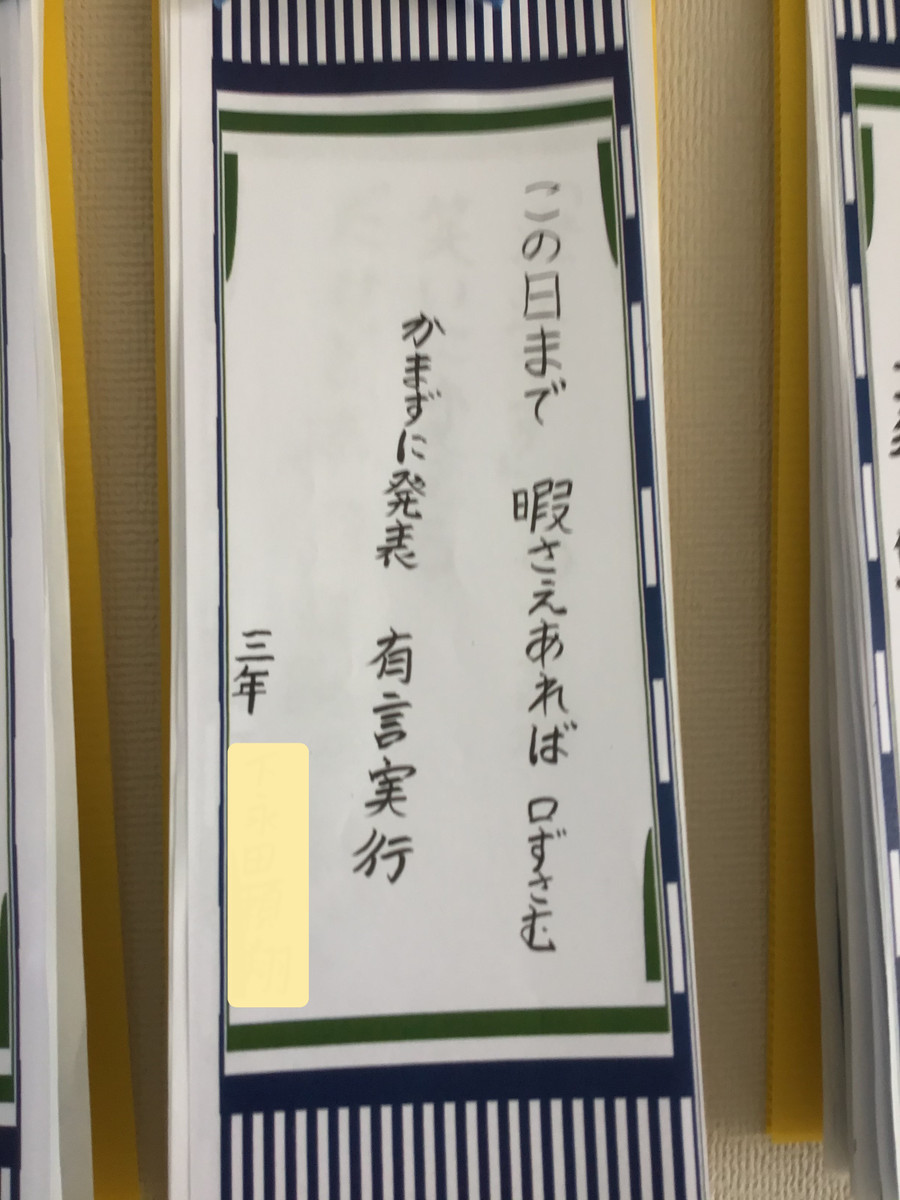 この日まで 暇さえあれば 口ずさむ
かまずに発表 有言実行
三年